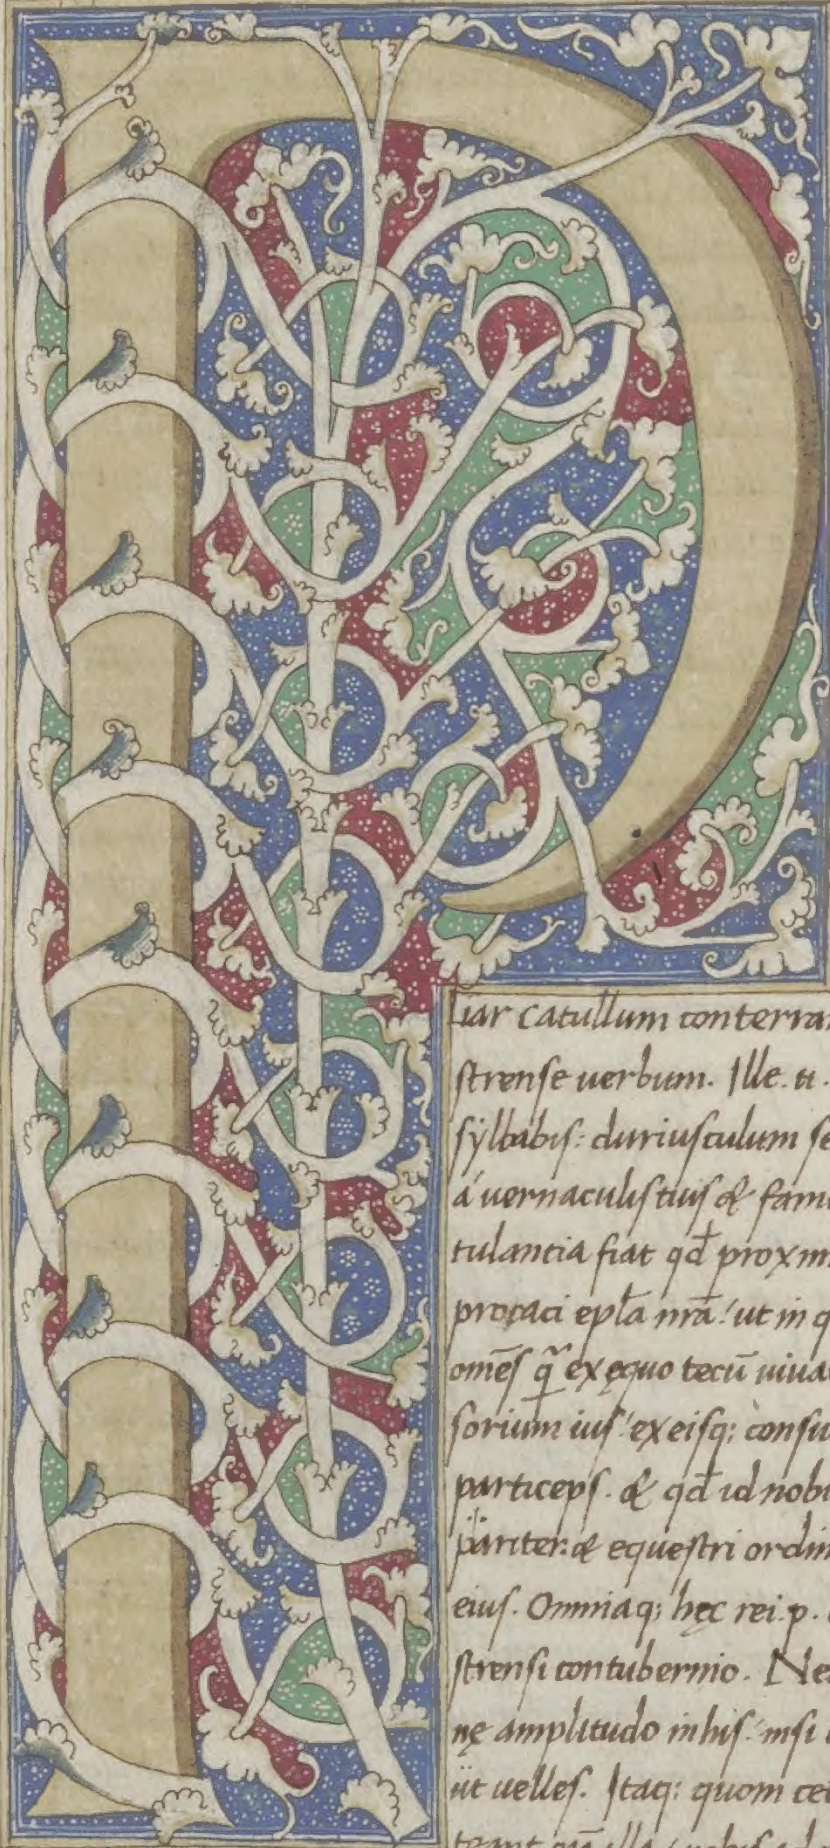 P
liar catullum conterra
strense uerbum. Ille. n.
syllabis: duriusculum se
a uernaculis tuis & famu
tulantia fiat qđ proxim
procaci epl̄a nr̄a: ut in q
omēs q̄ exęquo tecū uiua
sorium ius: ex eisq; consu
particeps. & qđ id nobi
pariter: & equestri ordin
eius. Omniaq; hęc rei. p.
strensi contubernio. Ne
nę amplitudo in his: nisi
ut uelles. Itaq: quom ce